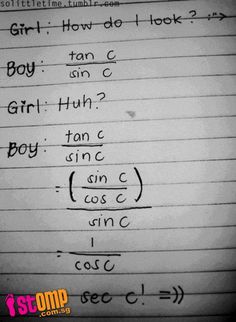 solittletime.tumblr.com
Girl: How do I look? :">
Boy: tan C
sin C
Girl: Huh?
Boy: tan C
sin C
= (sin C
cos C)
sin C
= 1
cos C
sec c! =))
stomp
.com.sg